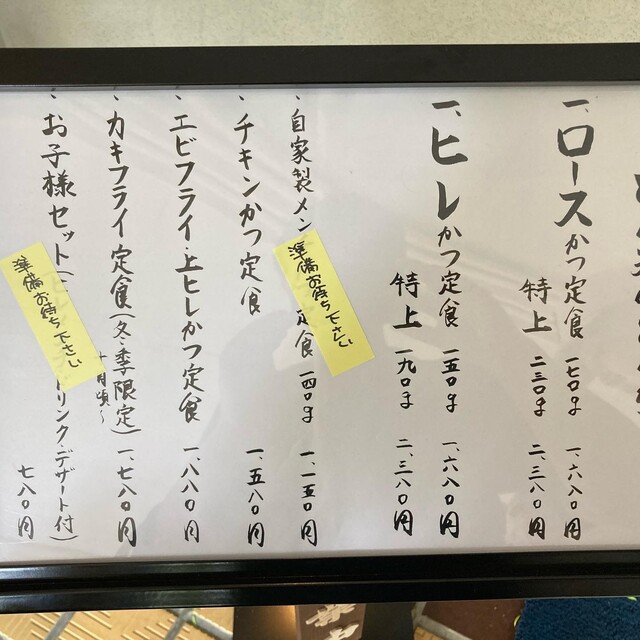 一、ロースかつ定食 一七〇g 一、六八〇円
特上 二三〇g 二、三八〇円
一、ヒレかつ定食 一五〇g 一、六八〇円
特上 一九〇g 二、三八〇円
自家製メン 定食 一四〇g 一、一五〇円
準備お待ち下さい
チキンかつ定食 一、五八〇円
エビフライ・上ヒレかつ定食 一、八八〇円
カキフライ定食(冬季限定) 一、七八〇円
十月頃〜
お子様セット( ドリンクデザート付) 七八〇円
準備お待ち下さい